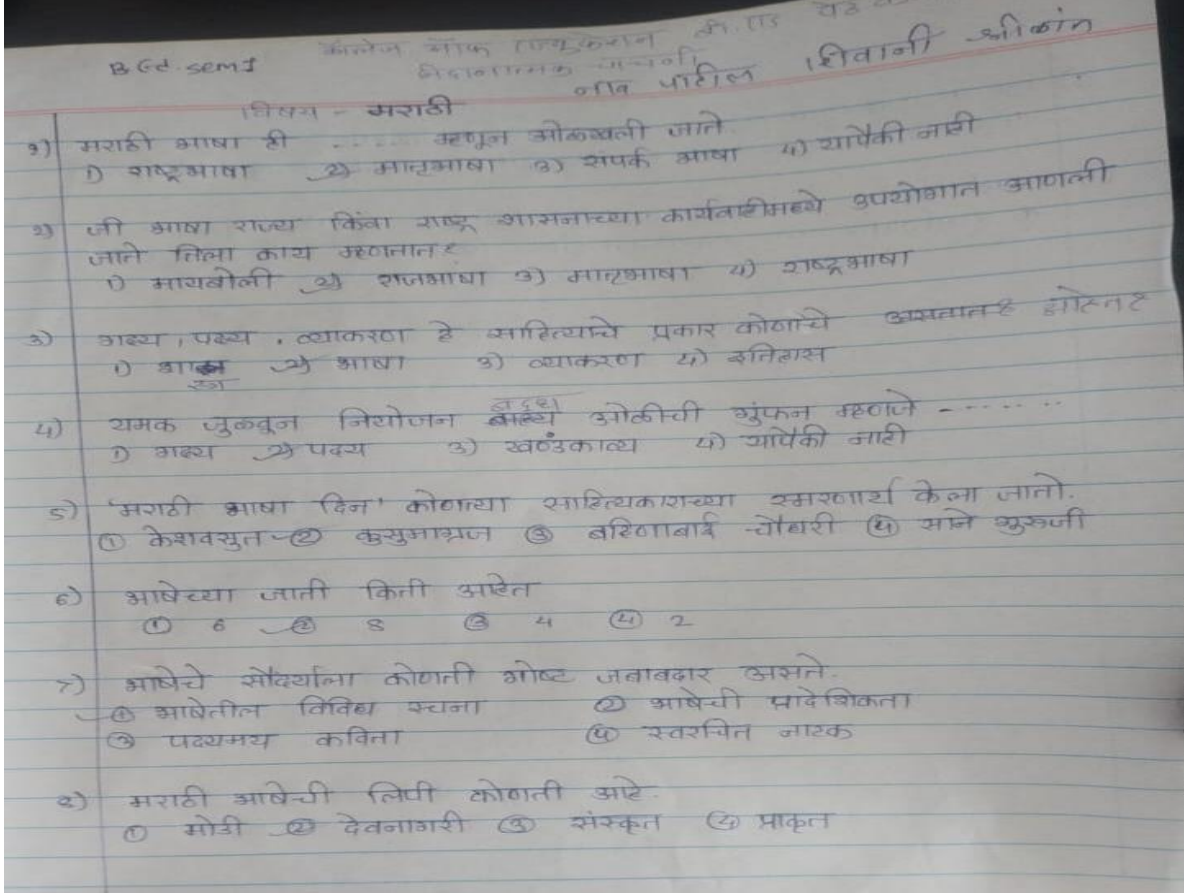 B.Ed. sem I कॉलेज ऑफ एज्युकेशन बी. एड पेठ
निदानात्मक चाचणी
नाव पाटील शिवानी श्रीकांत
विषय - मराठी
१) मराठी भाषा ही ..... म्हणून ओळखली जाते.
1) राष्ट्रभाषा 2) मातृभाषा 3) संपर्क भाषा 4) यापैकी नाही
२) जी भाषा राज्य किंवा राष्ट्र शासनाच्या कार्यवाहीमध्ये उपयोगात आणली
जाते तिला काय म्हणतात?
1) मायबोली 2) राजभाषा 3) मातृभाषा 4) राष्ट्रभाषा
३) गद्य, पद्य, व्याकरण हे साहित्याचे प्रकार कोणाचे असतात?
1) 2) भाषा 3) व्याकरण 4) इतिहास
4) यमक जुळवून नियोजन बद्ध ओळीची गुंफन म्हणजे -------
1) गद्य 2) पद्य 3) खण्डकाव्य 4) यापैकी नाही
5) 'मराठी भाषा दिन' कोणत्या साहित्यकाराच्या स्मरणार्थ केला जातो.
① केशवसुत ② कुसुमाग्रज ③ बहिणाबाई चौधरी ④ साने गुरुजी
6) भाषेच्या जाती किती आहेत
① 6 ② 8 ③ 4 ④ 2
7) भाषेचे सौंदर्याला कोणती गोष्ट जबाबदार असते.
① भाषेतील विविध रचना ② भाषेची प्रादेशिकता
③ पद्यमय कविता ④ स्वरचित नाटक
८) मराठी भाषेची लिपी कोणती आहे.
① मोडी ② देवनागरी ③ संस्कृत ④ प्राकृत